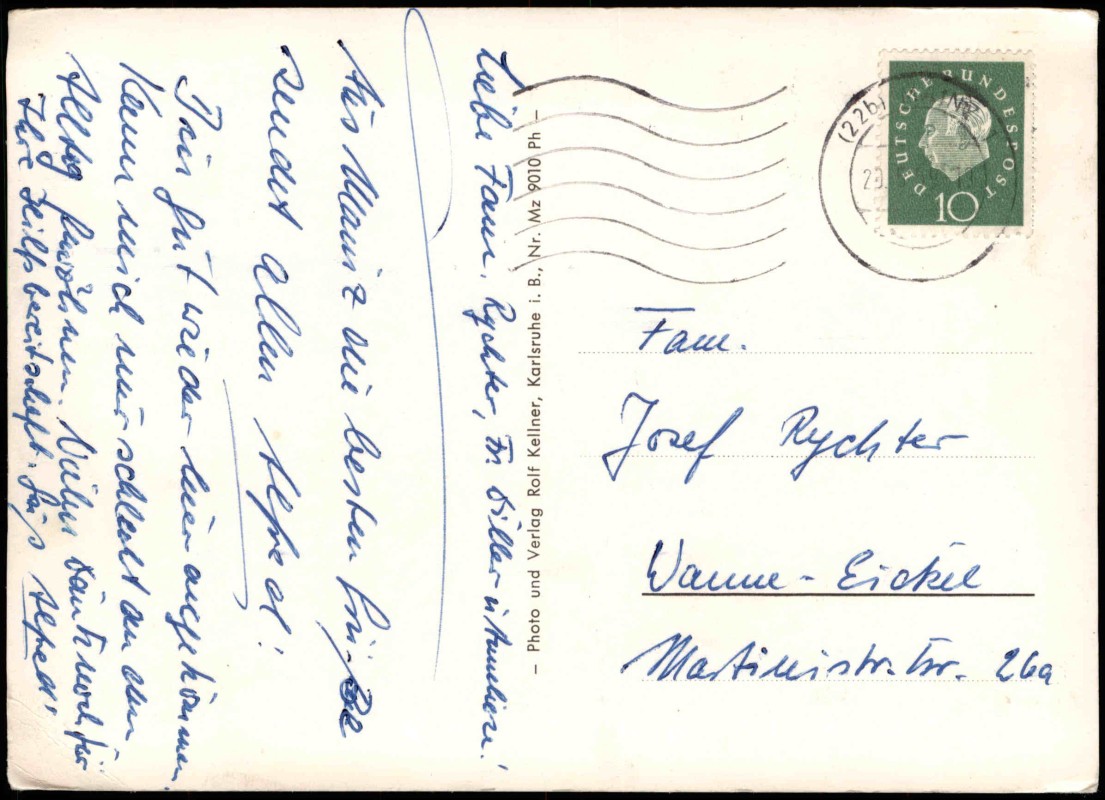 Liebe Fam. Rychter, Fr. Diller u. Annliese!
Aus Mainz die besten Grüße
sendet Allen Alfred!
Bin gut wieder hier angekommen.
Kann mich nur schlecht an den
Alltag gewöhnen. Vielen Dank noch für
Ihre Hilfsbereitschaft. Gruß Alfred"
– Photo und Verlag Rolf Kellner, Karlsruhe i. B., Nr. Mz 9010 Ph –
DEUTSCHE BUNDESPOST
10
(22b)
Fam.
Josef Rychter
Wanne-Eickel
Martinistr. 26a